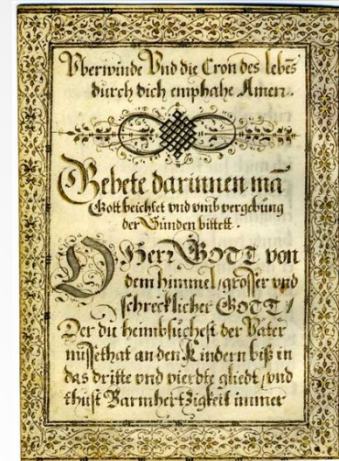 Vberwinde Vnd die Cron des lebēs
durch dich emphahe Amen.
Gebete darinnen mā
Gott beichtet vnd vmb vergebung
der Sünden bittett.
O Herr GOTT von
dem himmel, grosser vnd
schrecklicher GOTT /
Der du heimbsüchest der Väter
missethat an den Kindern biß in
das dritte vnd vierdte gliedt, vnd
thüst Barmhertzigkeit immer